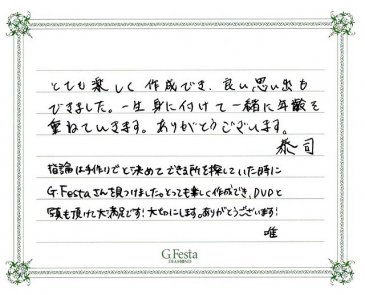 とても楽しく作成でき、良い思い出も
できました。一生身に付けて一緒に年齢を
重ねていきます。ありがとうございます。
恭司
指論は手作りでと決めてできる所を探していた時に
G.Festaさんを見つけました。とっても楽しく作成でき、DVDと
額も頂けて大満足です!大切にします。ありがとうございます!
唯
G.Festa
DIAMOND